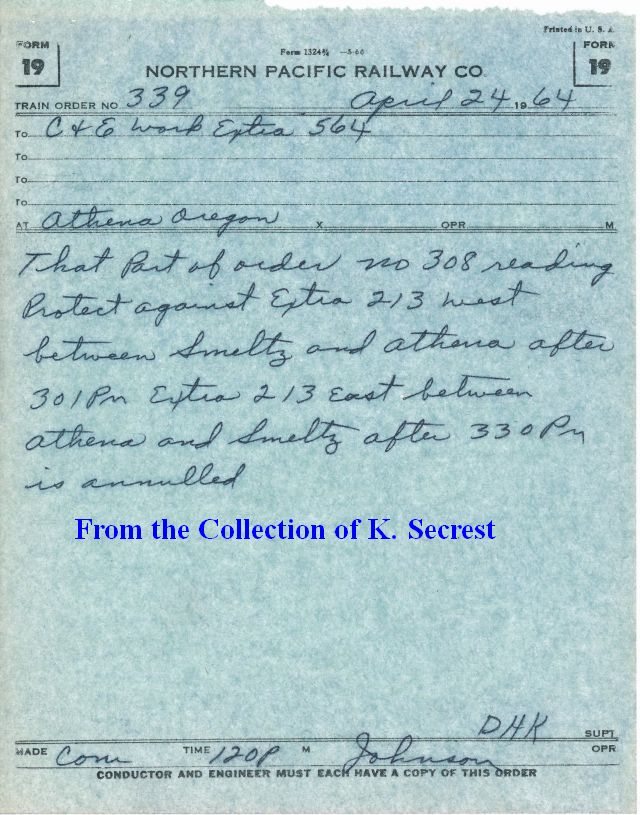 Printed in U. S. A.
FORM 19
Form 1324¾ —5-60
FORM 19
NORTHERN PACIFIC RAILWAY CO.
TRAIN ORDER NO 339 April 24 1964
To C & E Work Extra 564
To
To
To
AT Athena Oregon X OPR. M
That Part of order no 308 reading
Protect against Extra 213 west
between Smeltz and athena after
301 Pm Extra 213 East between
athena and Smeltz after 330 Pm
is annulled
From the Collection of K. Secrest
DHK SUPT.
MADE Com TIME 120P M Johnson OPR
CONDUCTOR AND ENGINEER MUST EACH HAVE A COPY OF THIS ORDER